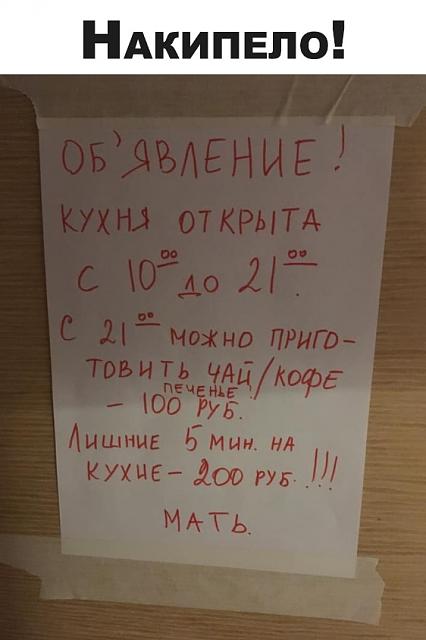 Накипело!
ОБ'ЯВЛЕНИЕ!
КУХНЯ ОТКРЫТА
С 10⁰⁰ ДО 21⁰⁰.
С 21⁰⁰ МОЖНО ПРИГО-
ТОВИТЬ ЧАЙ/КОФЕ
ПЕЧЕНЬЕ!
- 100 РУБ.
ЛИШНИЕ 5 МИН. НА
КУХНЕ - 200 РУБ. !!!
МАТЬ.